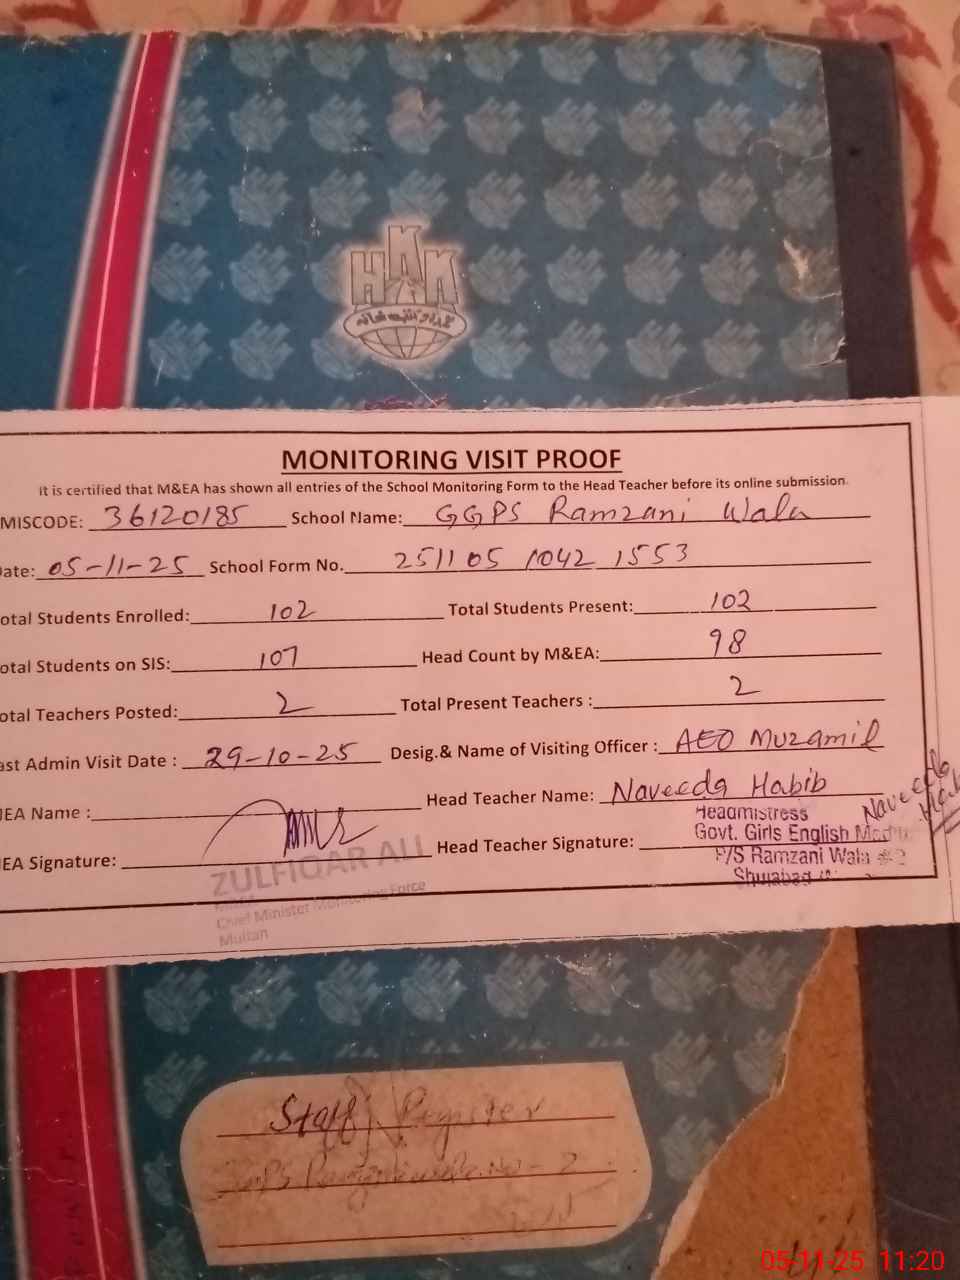 HAK
MONITORING VISIT PROOF
It is certified that M&EA has shown all entries of the School Monitoring Form to the Head Teacher before its online submission.
MISCODE: 36120185 School Name: GGPS Ramzani Wala
ate: 05-11-25 School Form No. 251105 1042 1553
otal Students Enrolled: 102 Total Students Present: 102
otal Students on SIS: 107 Head Count by M&EA: 98
otal Teachers Posted: 2 Total Present Teachers : 2
ast Admin Visit Date : 29-10-25 Desig.& Name of Visiting Officer : AEO Muzamil
EA Name : Head Teacher Name: Naveeda Habib
EA Signature: Head Teacher Signature:
Naveeda
Headmistress
Govt. Girls English
P/S Ramzani Wala #2
Shujabad
ZULFIQAR ALI
Chief Minister Monitoring Force
Multan
Staff Register
No - 2
05-11-25 11:20